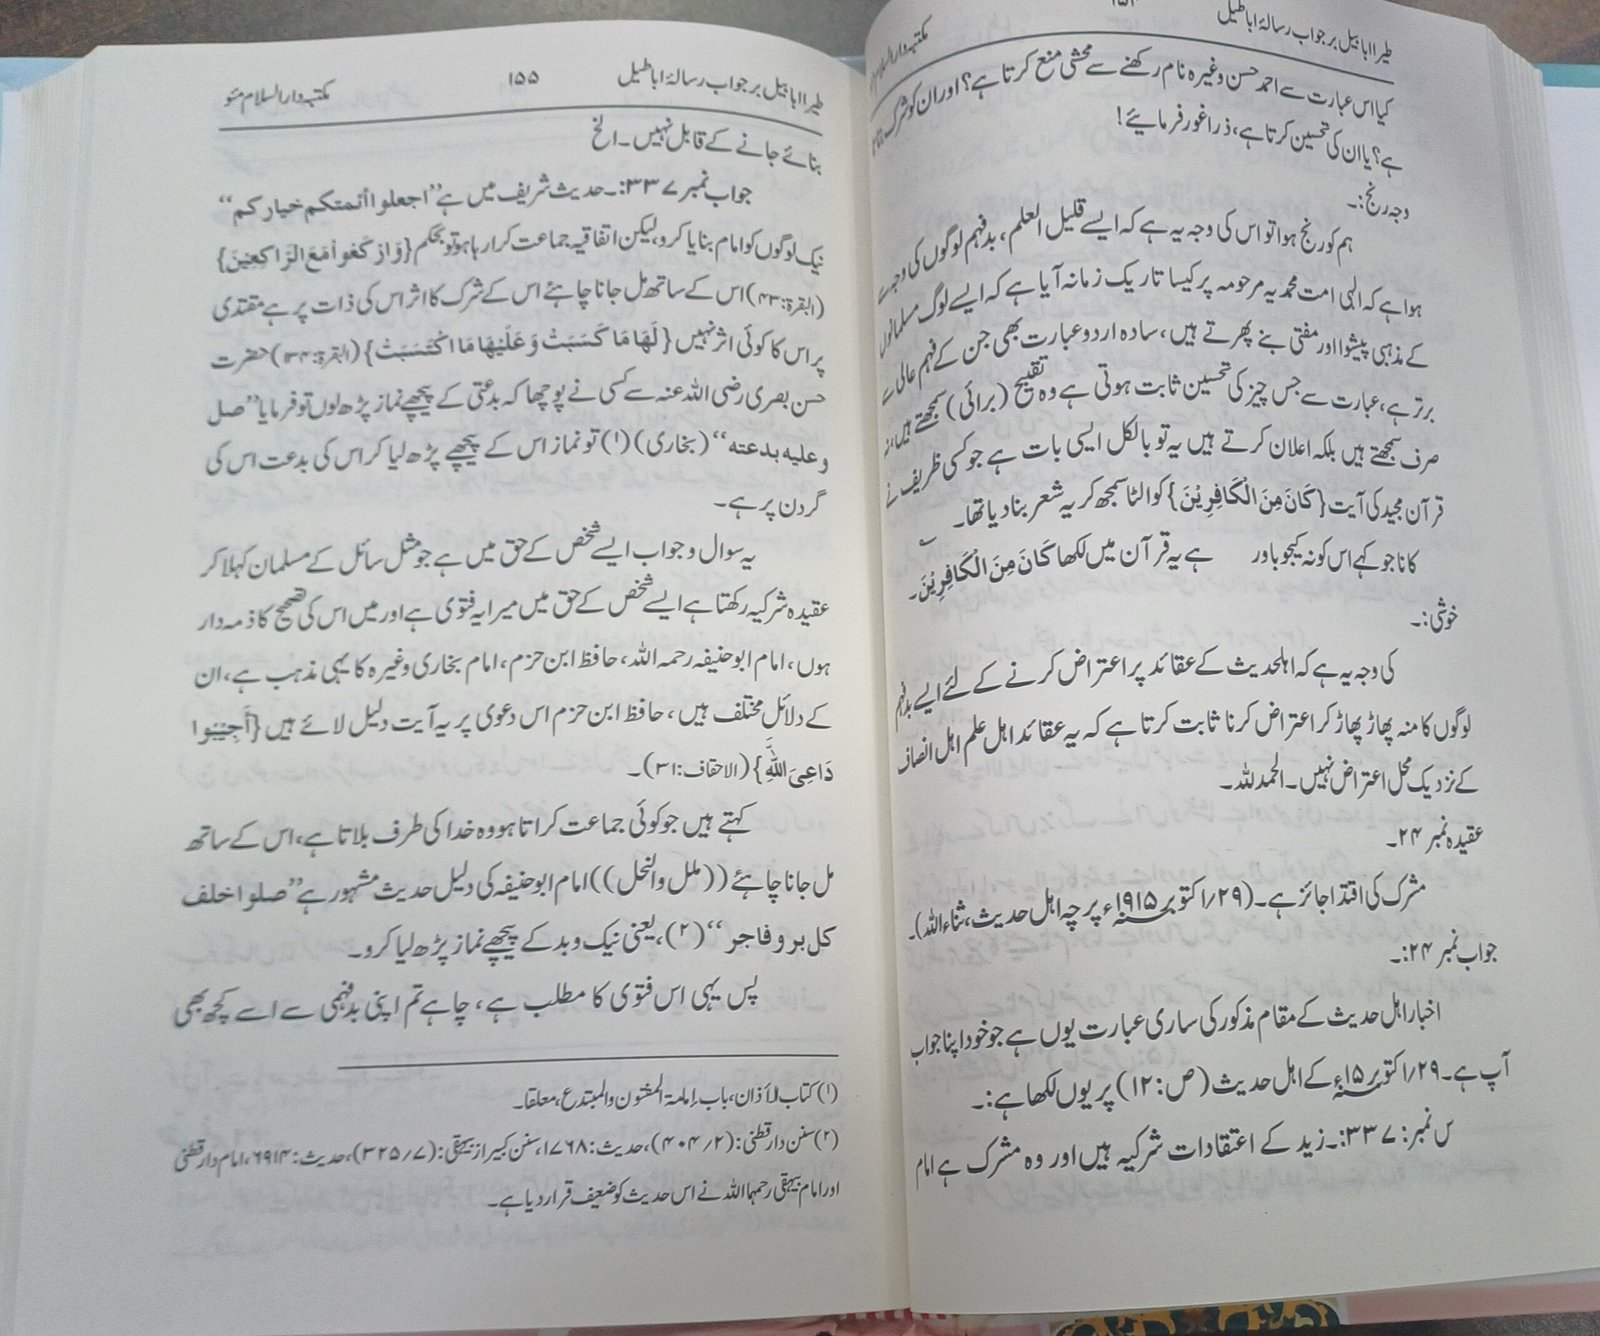 طیرا ابابیل بر جواب رسالۂ اباطیل
۱۵۴
مکتبہ دارالسلام
کیا اس عبارت سے احمد حسن وغیرہ نام رکھنے سے محشی منع کرتا ہے؟ اور ان کو شرک
ہے؟ یا ان کی تحسین کرتا ہے، ذرا غور فرمائیے!
وجہ رنج:۔
ہم کو رنج ہوا تو اس کی وجہ یہ ہے کہ ایسے قلیل العلم، بدفہم لوگوں کی وجہ سے
ہوا ہے کہ الٰہی امت محمدیہ مرحومہ پر کیسا تاریک زمانہ آیا ہے کہ ایسے لوگ مسلمانوں
کے مذہبی پیشوا اور مفتی بنے پھرتے ہیں، سادہ اردو عبارت بھی جن کے فہم عالی سے
برتر ہے، عبارت سے جس چیز کی تحسین ثابت ہوتی ہے وہ تقبیح (برائی) سمجھتے ہیں، نہ
صرف سمجھتے ہیں بلکہ اعلان کرتے ہیں یہ تو بالکل ایسی بات ہے جو کسی ظریف نے
قرآن مجید کی آیت {كَانَ مِنَ الْكَافِرِيْنَ} کو الٹا سمجھ کر یہ شعر بنا دیا تھا۔
کانا جو کہے اس کو نہ کیجو باور ہے یہ قرآن میں لکھا كَانَ مِنَ الْكَافِرِيْنَ۔
خوشی:۔
کی وجہ یہ ہے کہ اہلحدیث کے عقائد پر اعتراض کرنے کے لئے ایسے بدفہم
لوگوں کا منہ پھاڑ پھاڑ کر اعتراض کرنا ثابت کرتا ہے کہ یہ عقائد اہل علم اہل انصاف
کے نزدیک محل اعتراض نہیں۔ الحمد للہ۔
عقیدہ نمبر ۲۴۔
مشرک کی اقتدا جائز ہے۔ (۲۹/اکتوبر ۱۹۱۵ء پرچہ اہل حدیث، ثناء اللہ)۔
جواب نمبر ۲۴:۔
اخبار اہل حدیث کے مقام مذکور کی ساری عبارت یوں ہے جو خود اپنا جواب
آپ ہے۔ ۲۹/اکتوبر ۱۵ء کے اہل حدیث (ص:۱۲) پر یوں لکھا ہے:۔
س نمبر:۳۳۷:۔ زید کے اعتقادات شرکیہ ہیں اور وہ مشرک ہے امام
طیرا ابابیل بر جواب رسالۂ اباطیل
۱۵۵
مکتبہ دارالسلام مئو
بنائے جانے کے قابل نہیں۔ الخ
جواب نمبر ۳۳۷:۔ حدیث شریف میں ہے ”اجعلوا أئمتكم خياركم“
نیک لوگوں کو امام بنایا کرو، لیکن اتفاقیہ جماعت کرا رہا ہو تو بحکم {وَارْكَعُوا مَعَ الرَّاكِعِيْنَ}
(البقرۃ:۴۳) اس کے ساتھ مل جانا چاہئے اس کے شرک کا اثر اس کی ذات پر ہے مقتدی
پر اس کا کوئی اثر نہیں {لَهَا مَا كَسَبَتْ وَعَلَيْهَا مَا اكْتَسَبَتْ} (البقرۃ:۱۳۴) حضرت
حسن بصری رضی اللہ عنہ سے کسی نے پوچھا کہ بدعتی کے پیچھے نماز پڑھ لوں تو فرمایا ”صل
وعليه بدعته“ (بخاری) (۱) تو نماز اس کے پیچھے پڑھ لیا کر اس کی بدعت اس کی
گردن پر ہے۔
یہ سوال و جواب ایسے شخص کے حق میں ہے جو مثل سائل کے مسلمان کہلا کر
عقیدہ شرکیہ رکھتا ہے ایسے شخص کے حق میں میرا یہ فتوی ہے اور میں اس کی تصحیح کا ذمہ دار
ہوں، امام ابو حنیفہ رحمہ اللہ، حافظ ابن حزم، امام بخاری وغیرہ کا یہی مذہب ہے، ان
کے دلائل مختلف ہیں، حافظ ابن حزم اس دعوی پر یہ آیت دلیل لائے ہیں {أَجِيْبُوا
دَاعِيَ اللهِ} (الاحقاف:۳۱)۔
کہتے ہیں جو کوئی جماعت کراتا ہو وہ خدا کی طرف بلاتا ہے، اس کے ساتھ
مل جانا چاہئے ((ملل والنحل)) امام ابو حنیفہ کی دلیل حدیث مشہور ہے ”صلوا خلف
كل بر وفاجر“ (۲)، یعنی نیک و بد کے پیچھے نماز پڑھ لیا کرو۔
پس یہی اس فتوی کا مطلب ہے، چاہے تم اپنی بدفہمی سے اسے کچھ بھی
(۱) کتاب الأذان، باب إمامة المفتون والمبتدع، معلقا۔
(۲) سنن دارقطنی: (۲/۴۰۴)، حدیث: ۱۷۶۸، سنن کبیر از بیہقی: (۷/۳۲۵)، حدیث: ۶۹۱۴، امام دارقطنی
اور امام بیہقی رحمہما اللہ نے اس حدیث کو ضعیف قرار دیا ہے۔